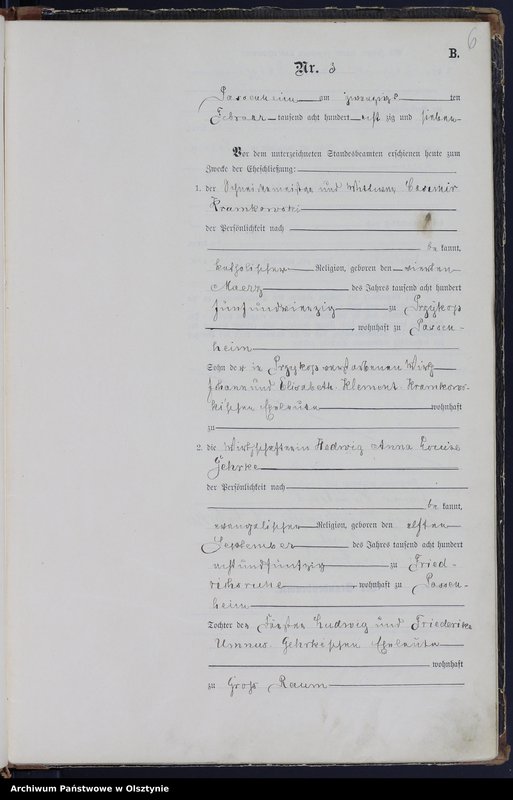 6
B.
Nr. 3
Passenheim am zwanzigs ten
Februar tausend acht hundert acht zig und sieben
Vor dem unterzeichneten Standesbeamten erschienen heute zum
Zwecke der Eheschließung:
1. der Schneidermeister und Wittwer Casimir
Kramkowski
der Persönlichkeit nach
be kannt,
katholischer Religion, geboren den vierten
Maerz des Jahres tausend acht hundert
fünfundvierzig zu Przykop
, wohnhaft zu Passen-
heim
Sohn der in Przykop verstorbenen Wirth
Johann und Elisabeth Klement Kramkows-
kischen Eheleute wohnhaft
zu
2. die Wirthschafterin Hedwig Anna Louise
Gehrke
der Persönlichkeit nach
be kannt,
evangelischer Religion, geboren den elften
September des Jahres tausend acht hundert
achtundfünfzig zu Fried-
richsruhe , wohnhaft zu Passen-
heim
Tochter der Förster Ludwig und Friederike
Umnus Gehrkischen Eheleute
wohnhaft
zu Groß Raum
Archiwum Państwowe w Olsztynie